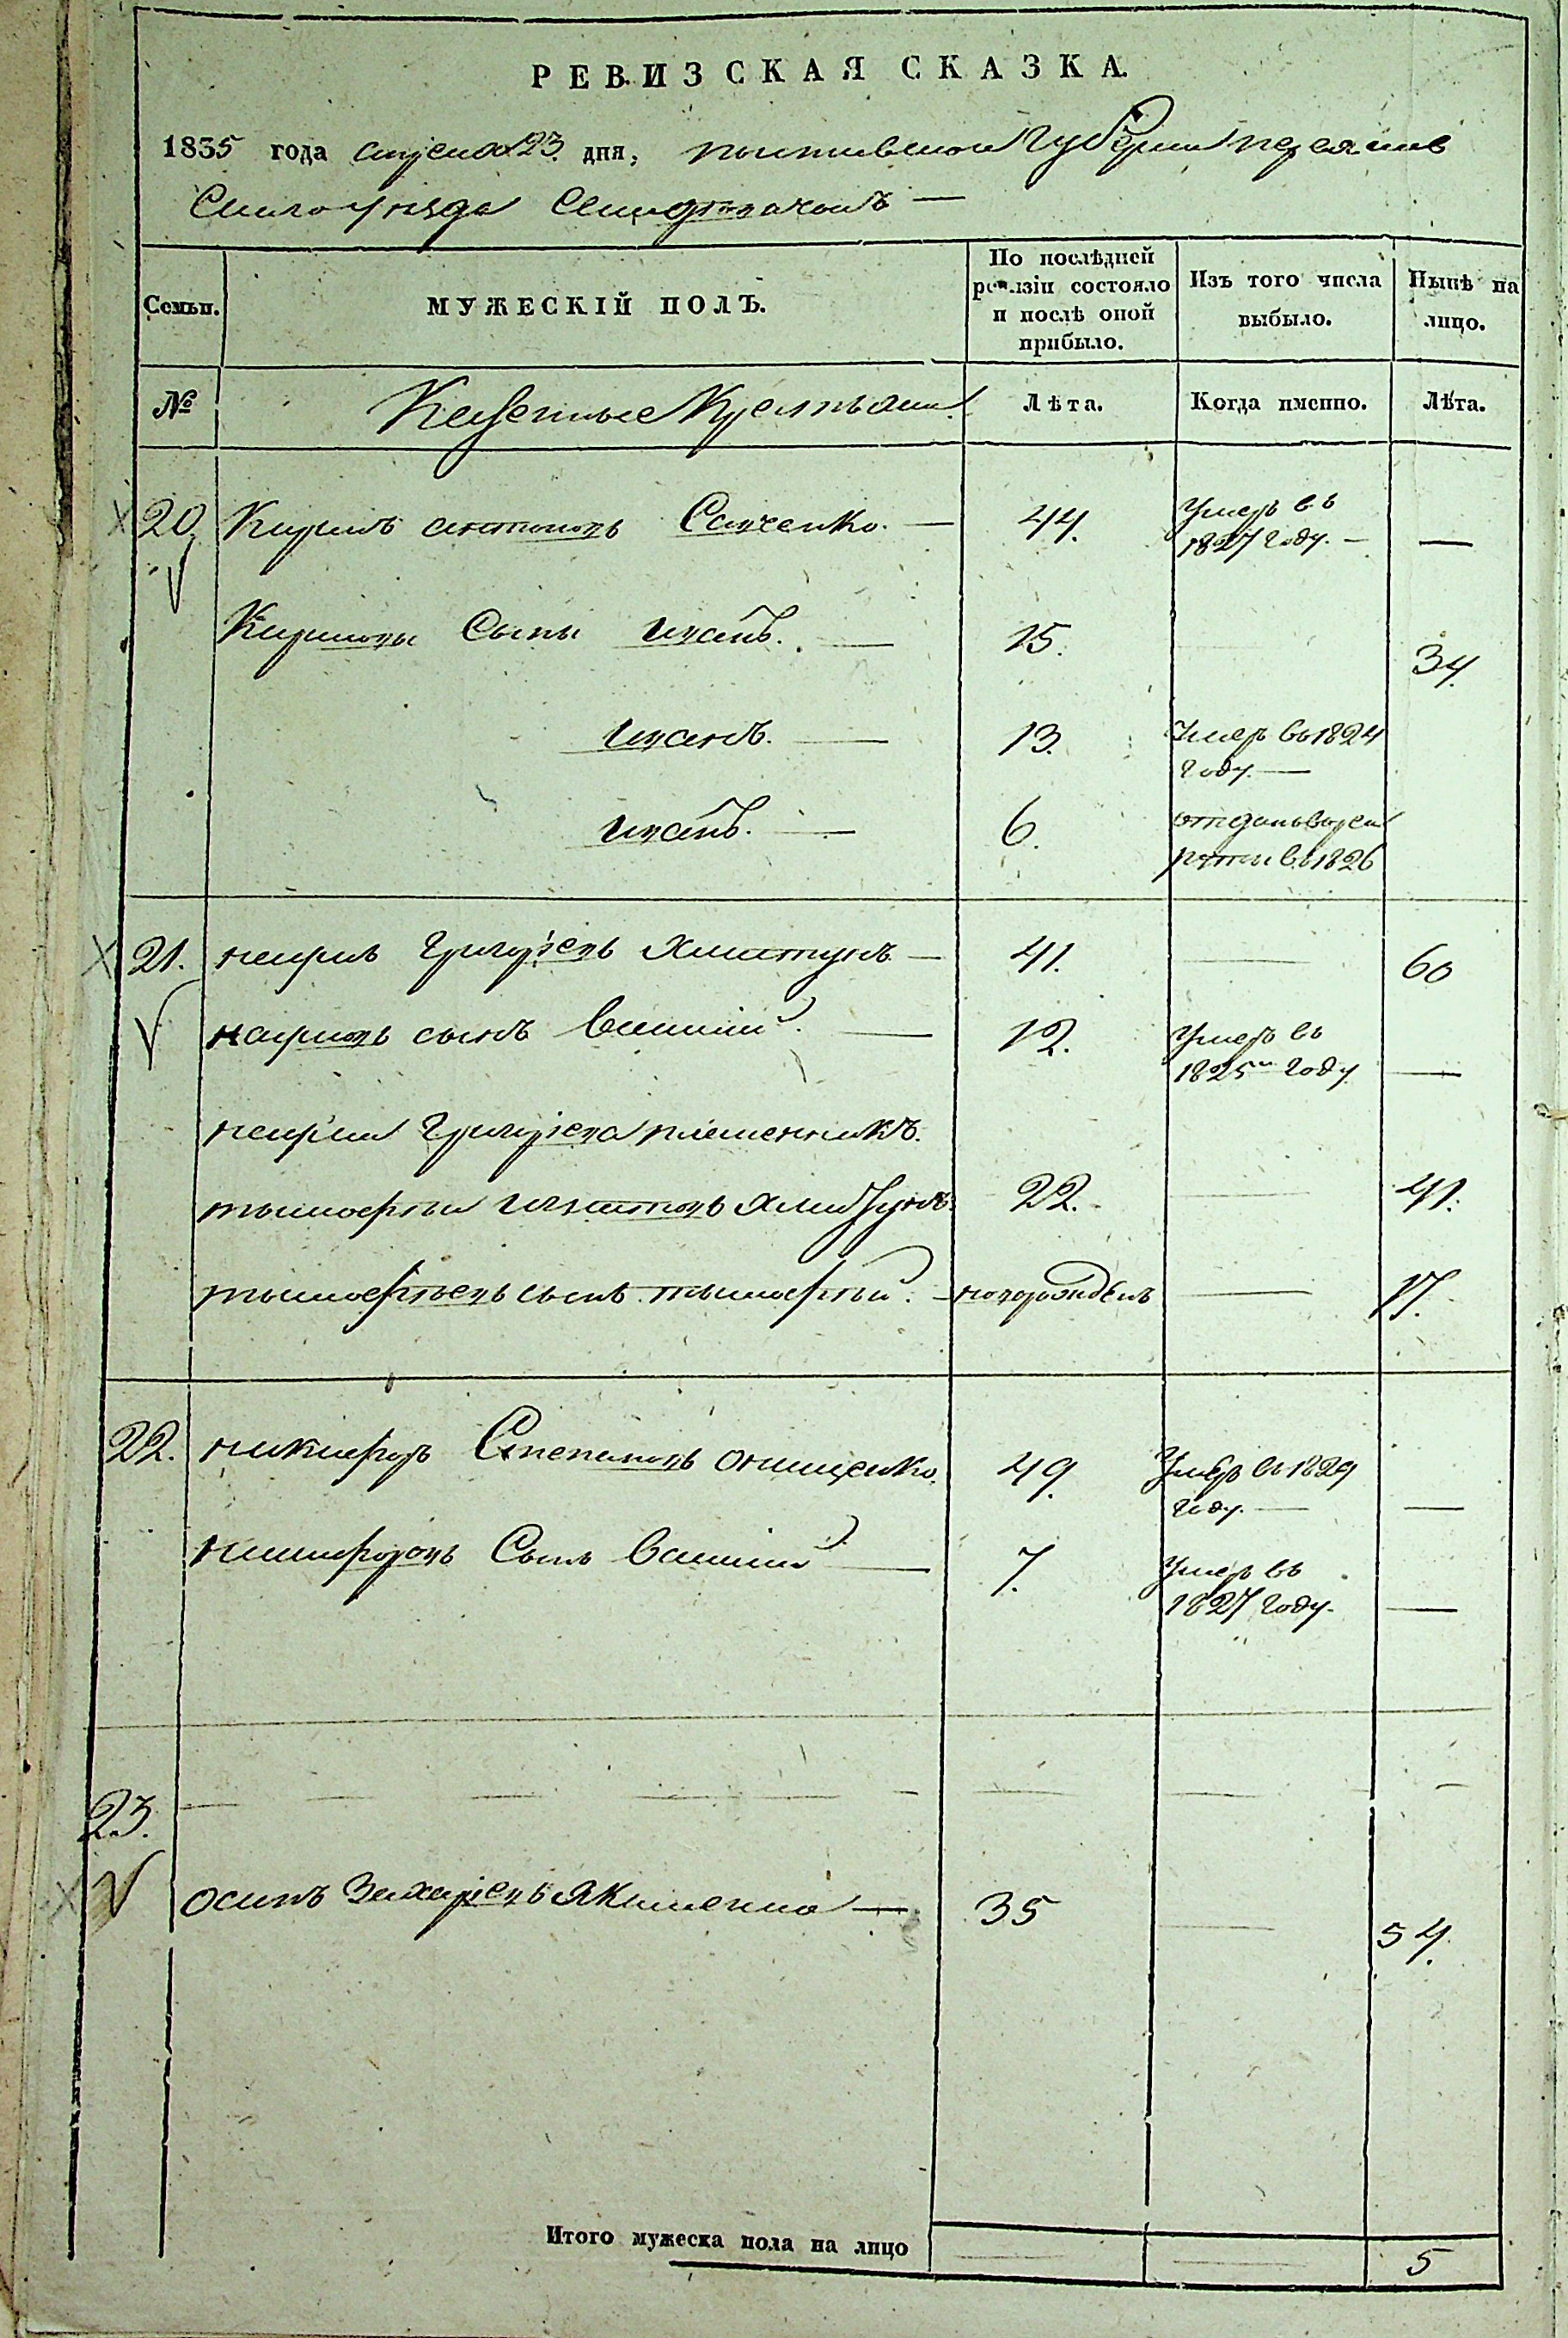 РЕВИЗСКАЯ СКАЗКА.
1835 года апреля 23 дня, полтавской Губернии переяслав
Скаго уезда Села
Семьи.
МУЖЕСКІЙ ПОЛЪ.
По послѣдней ревизіи состояло и послѣ оной прибыло.
Изъ того числа выбыло.
Нынѣ на лицо.
№
Казенные Крестьяне
Лѣта.
Когда именно.
Лѣта.
20. Кирилъ антоновъ Савченко. — 44. Умеръ въ
1827 году. — —
Кириловы Сыны иванъ. — 15. 34.
иванъ. — 13. Умеръ въ 1824
году. —
иванъ. — 6. отданъ в рек
руты въ 1826
21. кирилъ Григорьевъ Хмистунъ — 41. — 60
кириловъ сынъ василий. — 12. Умеръ въ
1825м году —
кирила Григорьева племенникъ.
тимофей игнатовъ 22. — 41.
тимофеевъ сынъ тимофей. — новорожденъ — 17.
22. никифоръ Степановъ онищенко. 49. Умеръ въ 1829
году. — —
никифоровъ Сынъ василий — 7. Умеръ въ
1827 году. —
23.
осипъ Захарьевъ Якименко — 35 — 54.
Итого мужеска пола на лицо — — 5